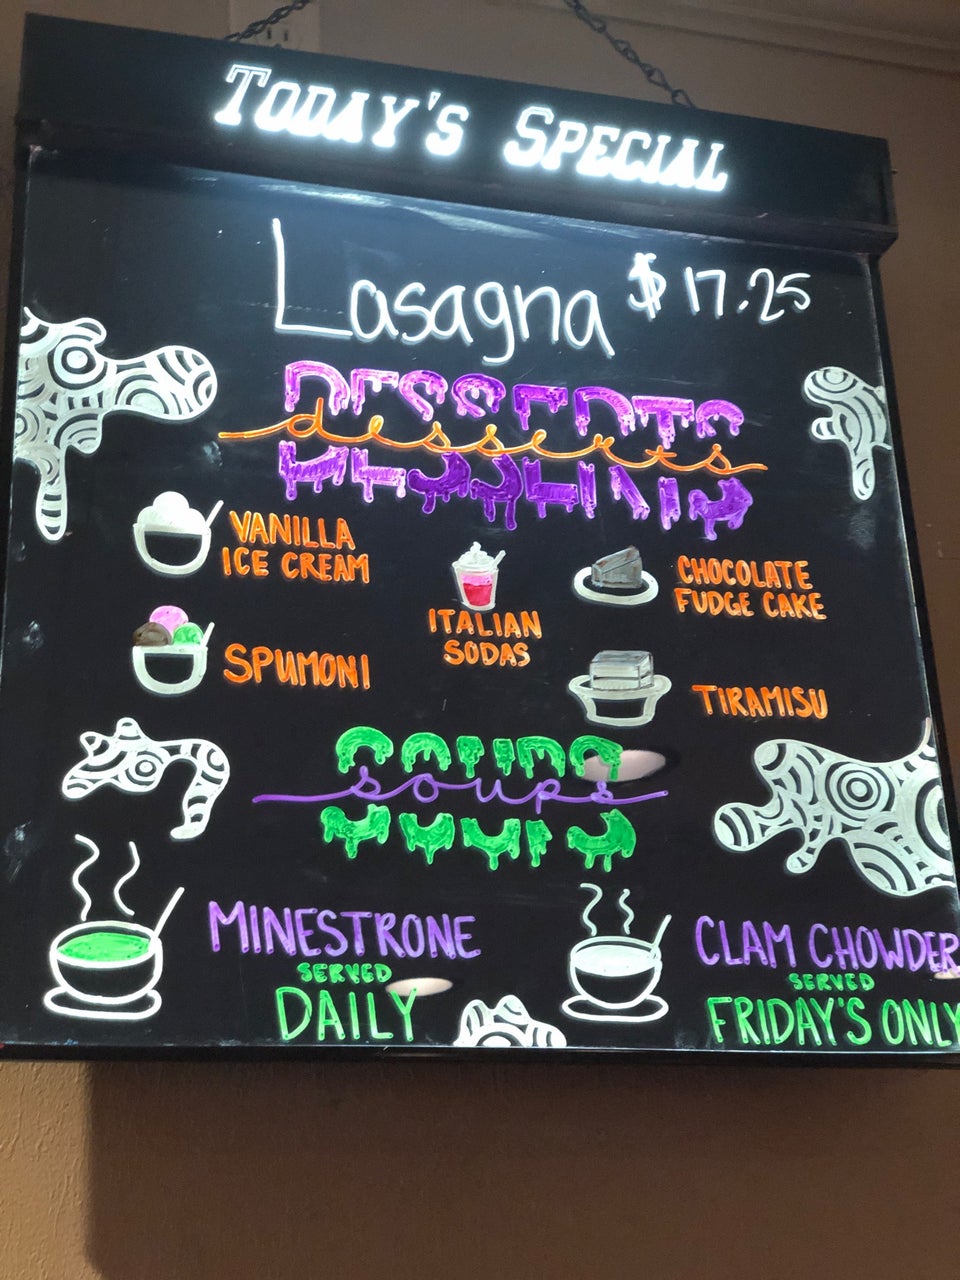 TODAY'S SPECIAL
Lasagna $17.25
DESSERTS
desserts
VANILLA
ICE CREAM
ITALIAN
SODAS
CHOCOLATE
FUDGE CAKE
SPUMONI
TIRAMISU
SOUPS
soups
MINESTRONE
SERVED
DAILY
CLAM CHOWDER
SERVED
FRIDAY'S ONLY